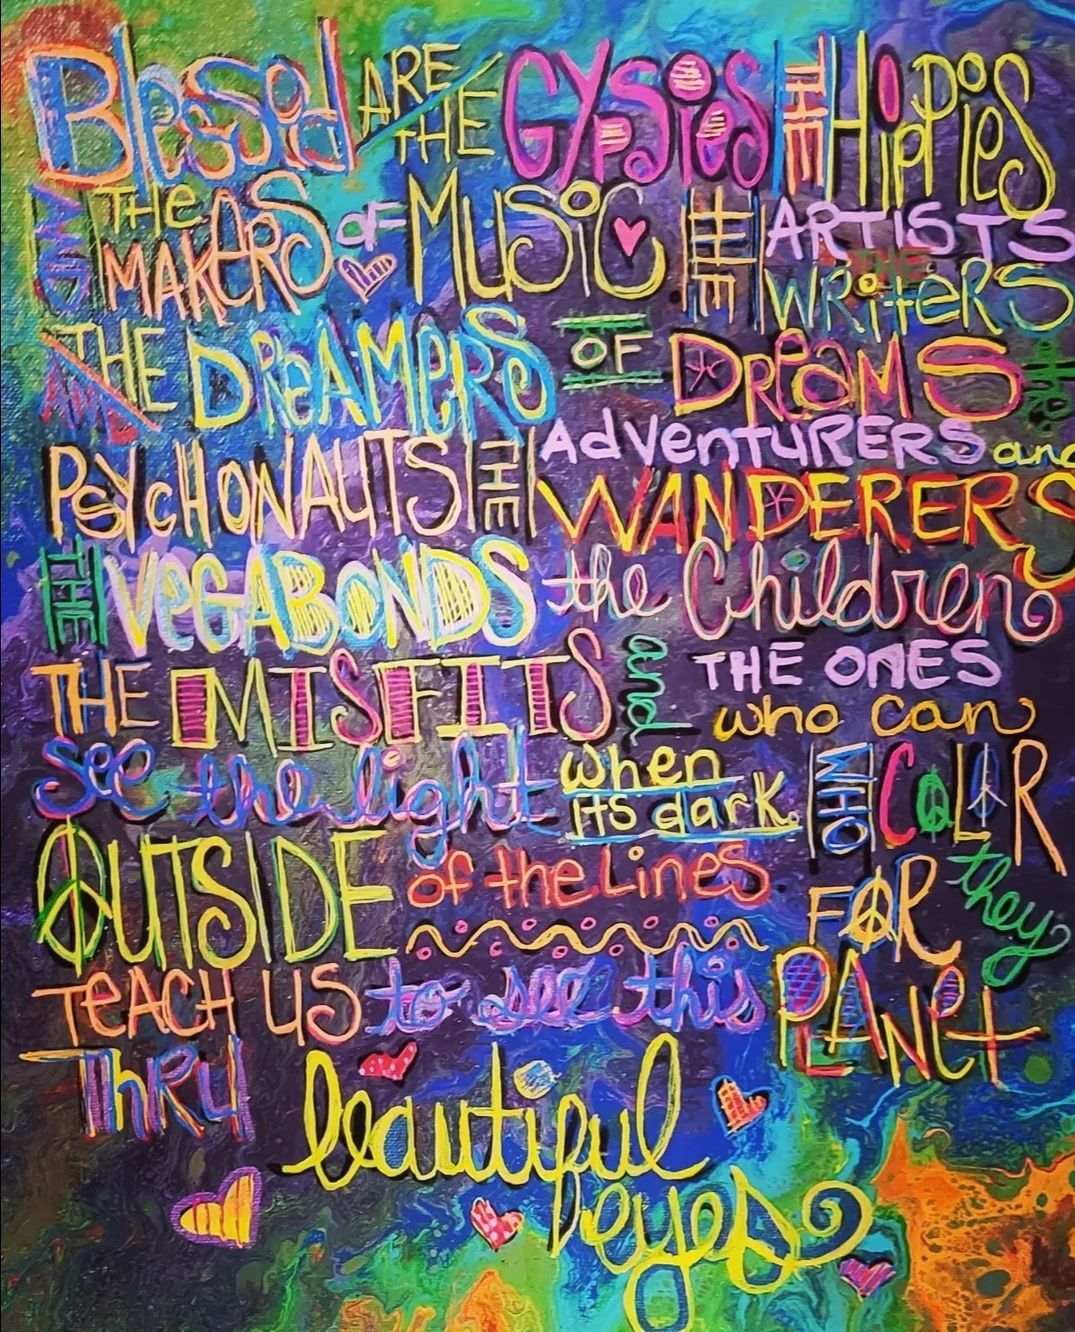 Blessed ARE THE GYPSies THE HippieS
AND THe MAKeRS oF MUSiC THE ARTISTS THE WRiteRS
AND THE DReAMeRS OF DReaMS the
PSYcHONAUTS THE AdVenTURERS and WANDERERS
THE VeGABONDS the Children
THE MISFITS and THE ONES who can
See the light when its dark. WHO COLOR
OUTSIDE of the Lines FOR they
TeACH US to see this PLANet
THRU beautiful eyes